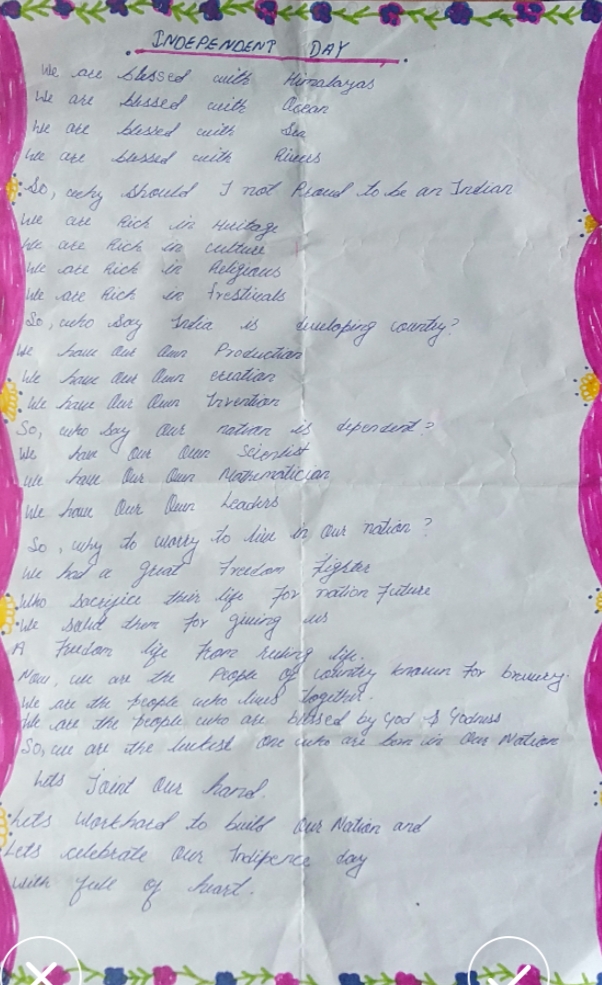 INDEPENDENT DAY
We are blessed with Himalayas
We are blessed with Ocean
We are blessed with Sea
We are blessed with Rivers
So, why should I not Proud to be an Indian
We are Rich in Heritage
We are Rich in culture
We are Rich in Religious
We are Rich in Frestivals
So, who say India is developing country?
We have our Own Production
We have our Own creation
We have Our Own Invention
So, who say our nation is dependent?
We have our own scientist
We have Our Own Mathematician
We have Our Own Leaders
So, why to worry to live in our nation?
We had a great Freedom Fighter
Who sacrifice their life for nation Future
We salut them for giving us
A Freedom life from ruling life.
Now, we are the People of country known for bravery.
We are the people who lives together.
We are the people who are blessed by God & Godness
So, we are the luckest one who are born in Our Nation
Lets Joint Our hand.
Lets workhard to build Our Nation and
Lets celebrate Our Indipence day
With full of heart.